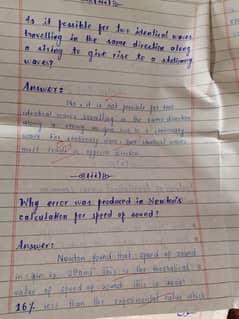 Is it possible for two identical waves
travelling in the same direction along
a string to give rise to a stationary
waves?
Answer:
No, it is not possible for two
identical waves travelling in the same direction
along a string to give rise to a stationary
wave. For stationary wave, two identical waves
must travel in opposite direction
Why error was produced in Newton's
calculation for speed of sound?
Answer:
Newton found that speed of sound
in air is 280ms this is the theoretical
value of speed of sound. this is
16% less than the experimental value which